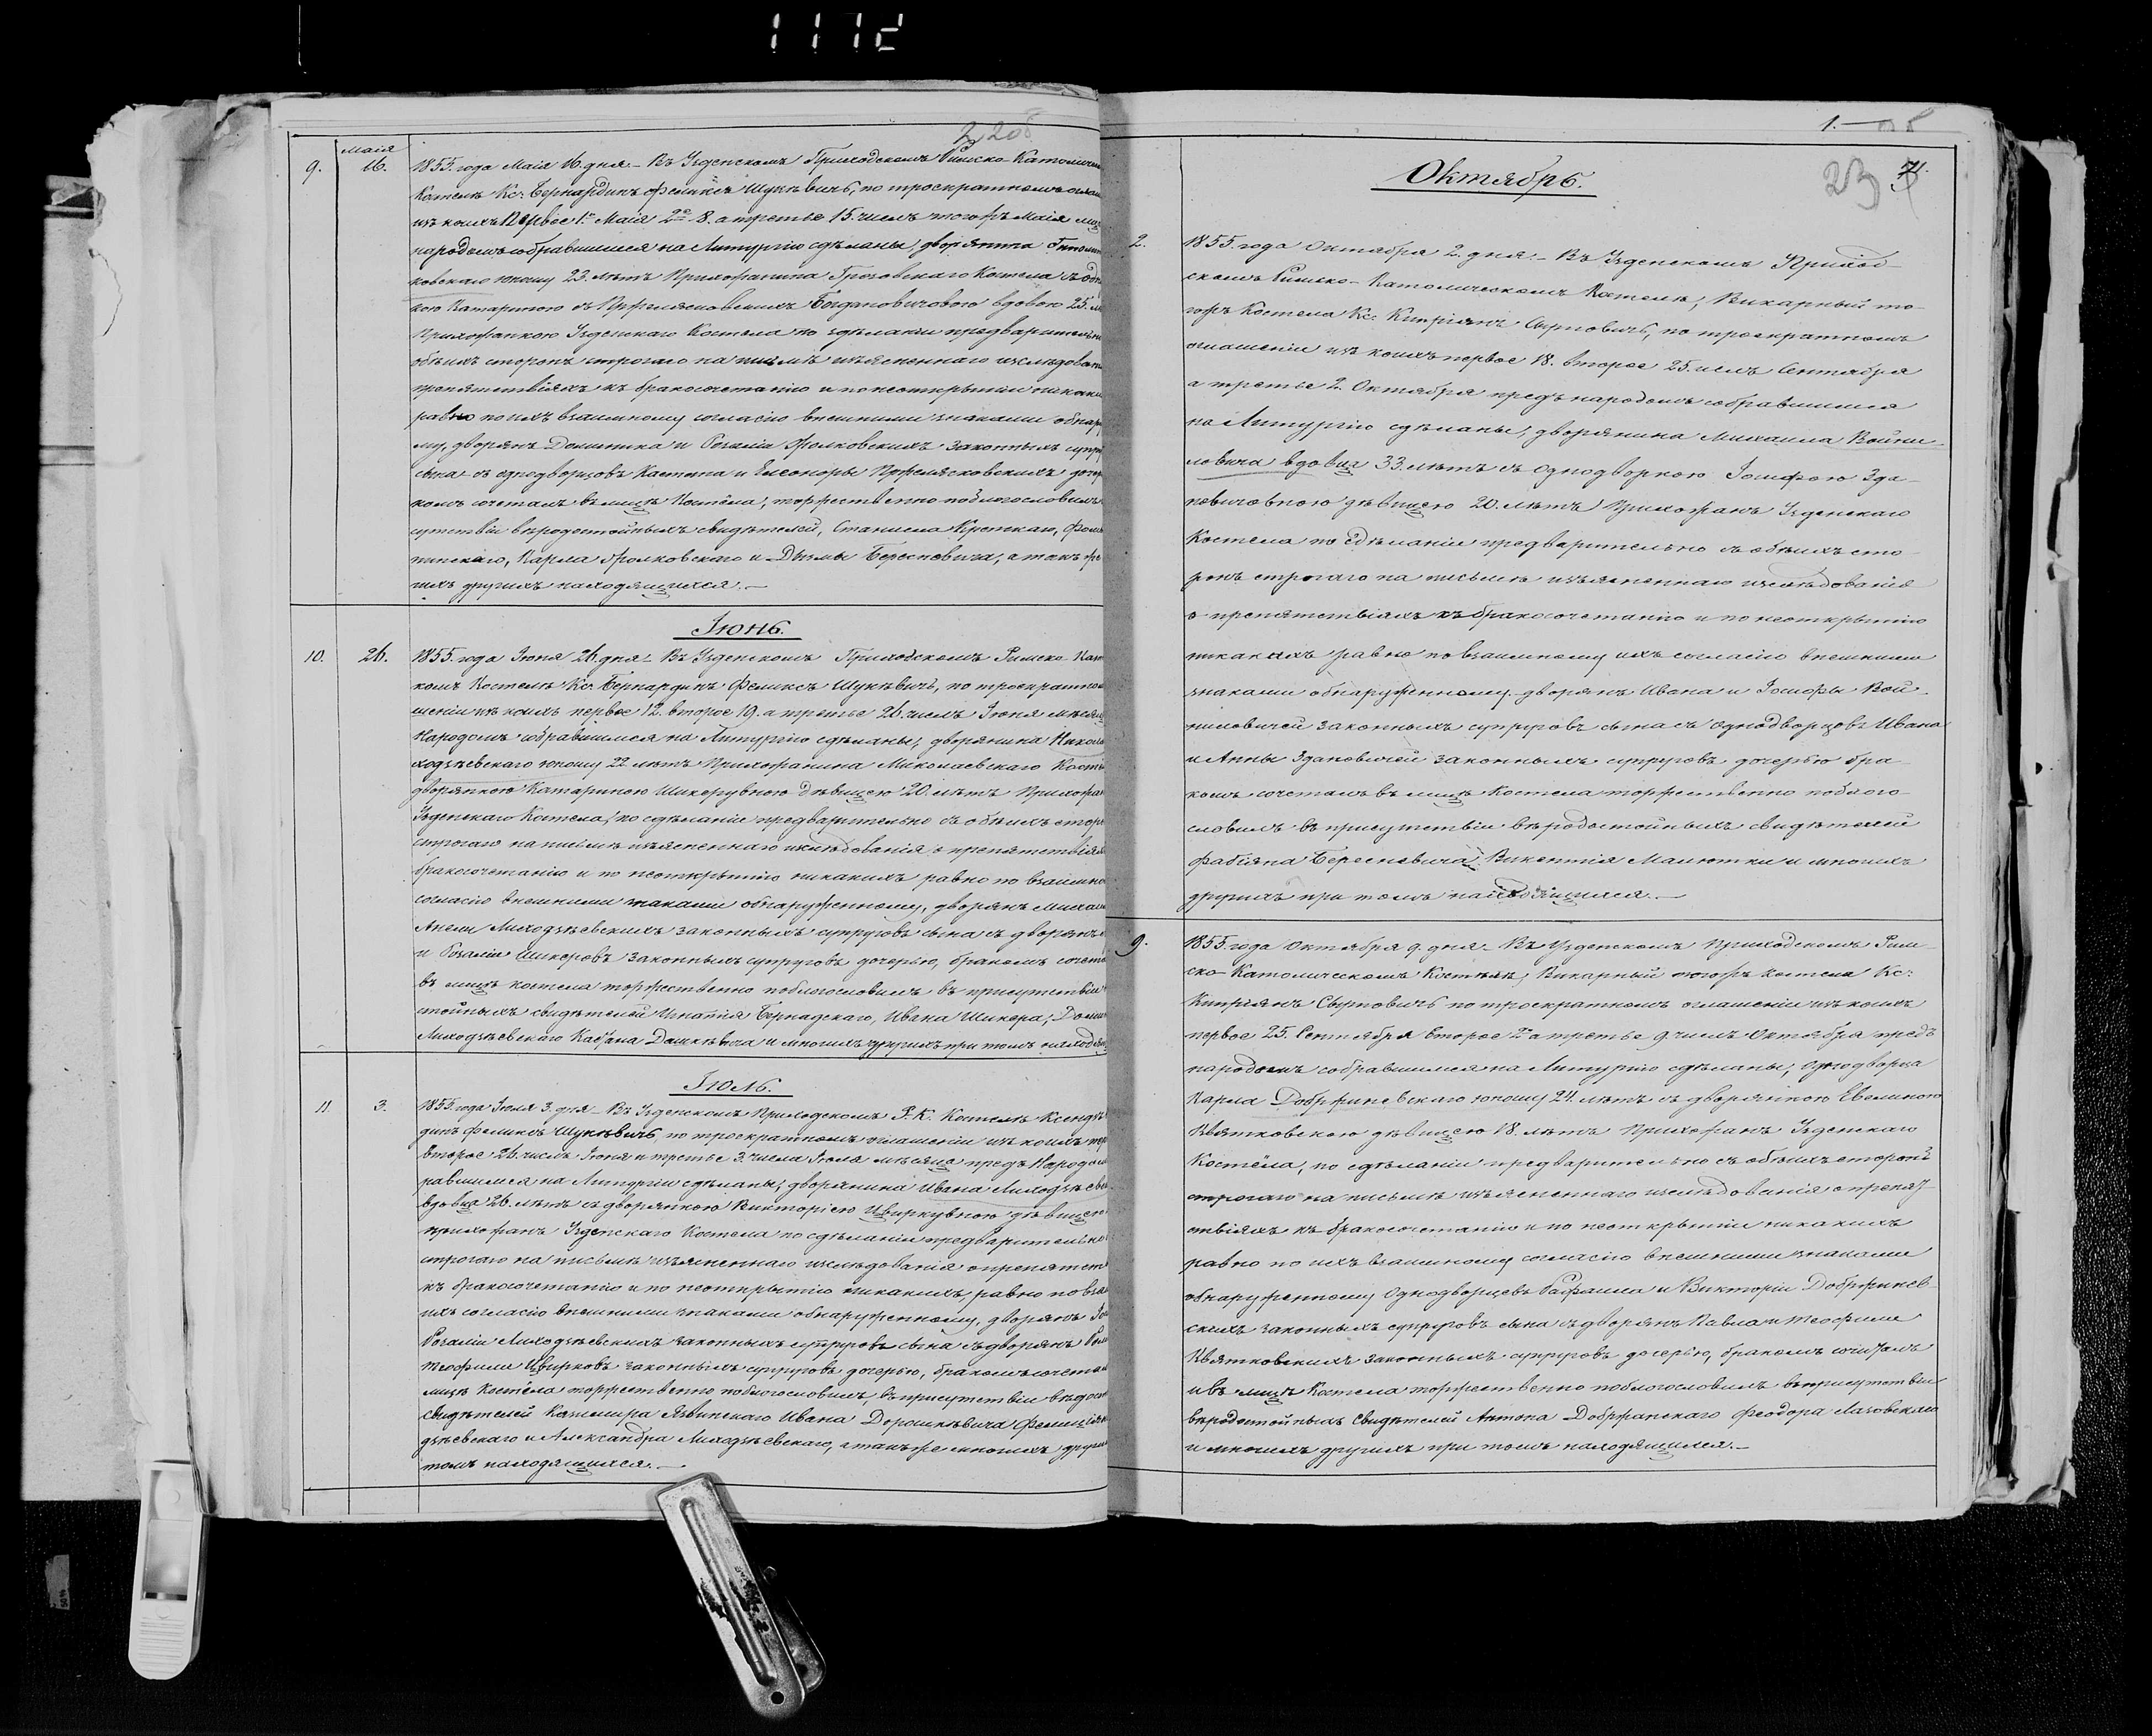 Маія
9. 16. 1855. года Маія 16. дня. – Въ Узденскомъ Приходскомъ Римско-Католичес
Костелѣ Кс: Бернардинъ Феликсъ Шукѣвичъ, по троекратномъ оглаш
изъ коихъ первое 1. Маія 2е 8. а третье 15. числъ тогожъ Маія
народомъ собравшимся на Литургію сдѣланы, дворянина
ковскаго юношу 23. лѣтъ Прихожанина Грозовскаго Костела съ одн
кою Катариною съ Богдановичовою вдовою 25.
Прихожанкою Узденскаго Костела по здѣланіи предварительн
обѣихъ сторонъ строгаго на письмѣ изъясненнаго изслѣдован
препятствіяхъ къ бракосочетанію и по неоткрытіи никаки
равно по ихъ взаимному согласію внешними знаками обнар
му, дворянъ Доминика и Розаліи Фолковскихъ законныхъ супр
сына съ однодворцовъ Каетана и Елеоноры дочер
комъ сочеталъ въ лицѣ Костёла, торжественно поблагословилъ
сутствіи вѣродостойныхъ свидѣтелей, Станислава
Карла Фолковскаго и Дымы Бересневича, а такъ же
гихъ другихъ находящихся. –
Іюнь.
10. 26. 1855. года Іюня 26. дня – Въ Узденскомъ Приходскомъ Римско-Кат
комъ Костелѣ Кс: Бернардинъ Феликсъ Шукѣвичъ, по троекратном
шеніи изъ коихъ первое 12. второе 19. а третье 26. числъ Іюня мѣсяца
Народомъ собравшимся на Литургію сдѣланы, дворянина Никола
ходзѣевскаго юношу 22 лѣтъ Прихожанина Миколаевскаго Косте
дворянкою Катариною Шикерувною дѣвицею 20. лѣтъ Прихожан
Узденскаго Костела, по сдѣланіи предварительно съ обѣихъ сторо
строгаго на письмѣ изъясненнаго изслѣдованія о препятствіях
бракосочетанію и по неоткрытію никакихъ равно по взаимно
согласію внешними знаками обнаруженному, дворянъ Михаи
Анели Лиходзѣевскихъ законныхъ супруговъ сына съ дворянъ
и Розаліи Шикеровъ законныхъ супруговъ дочерью, бракомъ сочета
въ лицѣ костела торжественно поблагословилъ въ присутствіи
стойныхъ свидѣтелей Игнатія Бернадскаго, Ивана Шикера, Доми
Лиходзѣевскаго Каетана Дашкѣвича и многихъ другихъ при томъ находя
Іюль.
11 3. 1855. года Іюля 3. дня – Въ Узденскомъ Приходскомъ Р. К. Костелѣ Ксендзъ
динъ Феликсъ Шукѣвичъ, по троекратномъ оглашеніи изъ коихъ пер
второе 26. числъ Іюня и третье 3. числа Іюля мѣсяца предъ Народом
равшимся на Литургіи сдѣланы, дворянина Ивана Лиходзѣевс
вдовца 26. лѣтъ съ дворянкою Викторіею Цвиркувною дѣвицею
прихожанъ Узденскаго Костела по сдѣланіи предварительно
строгаго на письмѣ изъясненнаго изслѣдованія о препятст
къ бракосочетанію и по неоткрытію никакихъ, равно по вза
ихъ согласію внешними знаками обнаруженному, дворянъ
Розаліи Лиходзѣевскихъ законныхъ супруговъ сына съ дворянъ
Теофили Цвирковъ законныхъ супруговъ дочерью, бракомъ сочетал
лицѣ Костёла торжественно поблагословилъ, въ присутствіи вѣдост
свидѣтелей Казимира Явинскаго Ивана Дорошкѣвича
дзѣевскаго и Александра Лиходзѣевскаго, а такъ же многихъ други
томъ находящихся. –
1.
23
Октябрь.
2. 1855. года Октября 2. дня – Въ Узденскомъ Приход-
скомъ Римско-Католическомъ Костелѣ, Викарный то-
гожъ Костела Кс: Кипріянъ Сырповичъ, по троекратномъ
оглашеніи изъ коихъ первое 18. второе 25. числъ Сентября
а третье 2. Октября предъ народомъ собравшимся
на Литургію сдѣланы, дворянина Михаила Войни-
ловича вдовца 33. лѣтъ съ однодворкою Іозефою Зда-
новичовною дѣвицею 20. лѣтъ Прихожанъ Узденскаго
Костела по сдѣланіи предварительно съ обѣихъ сто-
ронъ строгаго на письмѣ изъясненнаго изслѣдованія
о препятствіяхъ къ бракосочетанію и по неоткрытію
никакихъ равно по взаимному ихъ согласію внешними
знаками обнаруженному дворянъ Ивана и Іозефы Вой-
ниловичей законныхъ супруговъ сына съ Однодворцовъ Ивана
и Анны Здановичей законныхъ супруговъ дочерью бра-
комъ сочеталъ въ лицѣ Костела торжественно поблаго-
словилъ въ присутствіи вѣродостойныхъ свидѣтелей
Фабіяна Бересневича Викентія Малютки и многихъ
другихъ при томъ находящихся. –
9. 1855. года Октября 9. дня – Въ Узденскомъ Приходскомъ Рим-
ско-Католическомъ Костелѣ, Викарный тогожъ костела Кс:
Кипріянъ Сырповичъ по троекратномъ оглашеніи изъ коихъ
первое 25. Сентября второе 2е а третье 9. числъ Октября предъ
народомъ собравшимся на Литургію сдѣланы, Однодворца
Карла Добржиневскаго юношу 24. лѣтъ съ дворянкою Евелиною
Квятковскою дѣвицею 18. лѣтъ Прихожанъ Узденскаго
Костёла, по сдѣланіи предварительно съ обѣихъ сторонъ
строгаго на письмѣ изъясненнаго изслѣдованія о препят-
ствіяхъ къ бракосочетанію и по неоткрытіи никакихъ
равно по ихъ взаимному согласію внешними знаками
обнаруженному Однодворцевъ Рафаила и Викторіи Добржинев-
скихъ законныхъ супруговъ сына съ дворянъ Павла и Теофили
Квятковскихъ законныхъ супруговъ дочерью, бракомъ сочеталъ
и въ лицѣ Костела торжественно поблагословилъ въ присутствіи
вѣродостойныхъ Свидѣтелей Антона Добржанскаго Феодора Лазовскаго
и многихъ другихъ при томъ находящихся. –